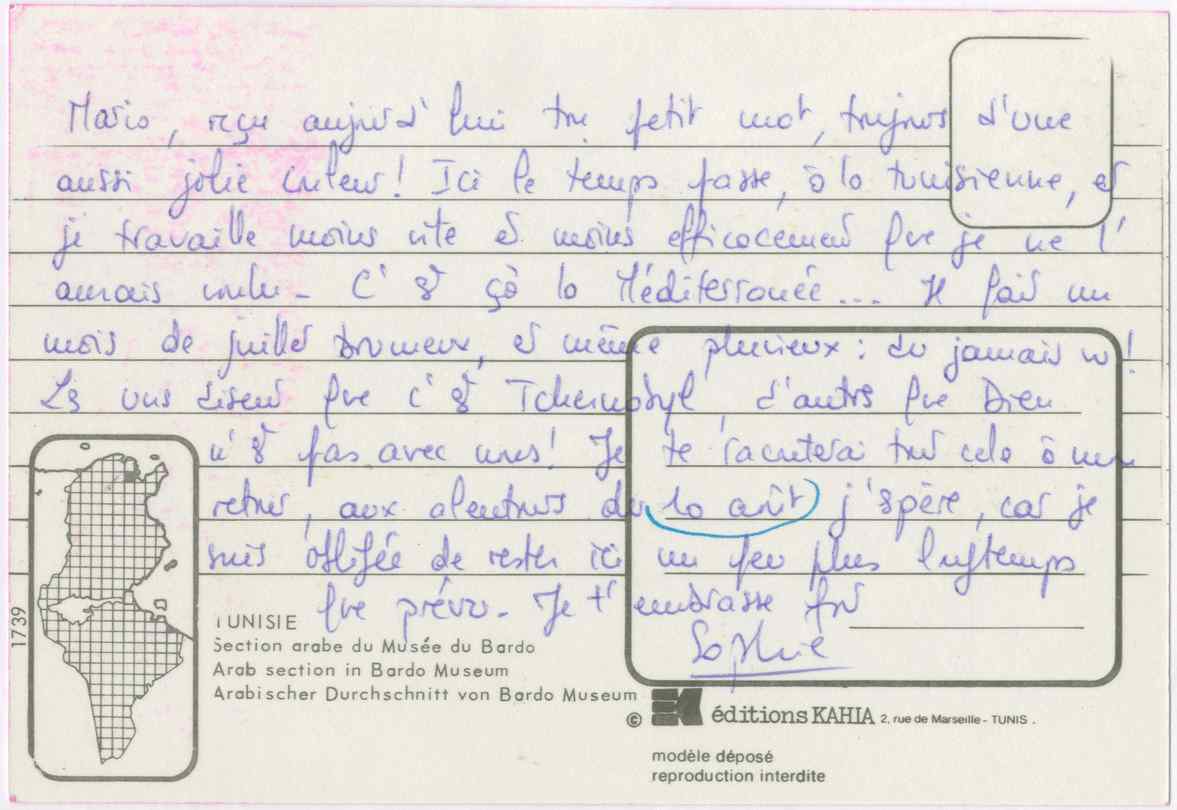 Mario, reçu aujourd'hui ton petit mot, toujours d'une
aussi jolie couleur! Ici le temps passe, à la tunisienne, et
je travaille moins vite et moins efficacement que je ne l'
aurais voulu - C'est çà la Méditerranée... Il fait un
mois de juillet brumeux, et même pluvieux : du jamais vu!
Les uns disent que c'est Tchernobyl, d'autres que Dieu
n'est pas avec nous! Je te raconterai tout cela à mon
retour, aux alentours du 10 août j'espère, car je
suis obligée de rester ici un peu plus longtemps
que prévu - Je t'embrasse fort
Sophie
1739
TUNISIE
Section arabe du Musée du Bardo
Arab section in Bardo Museum
Arabischer Durchschnitt von Bardo Museum
© éditions KAHIA 2, rue de Marseille - TUNIS .
modèle déposé
reproduction interdite